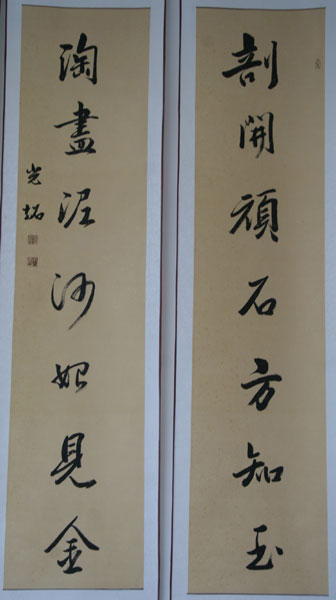 剖開頑石方知玉
淘盡泥沙始見金